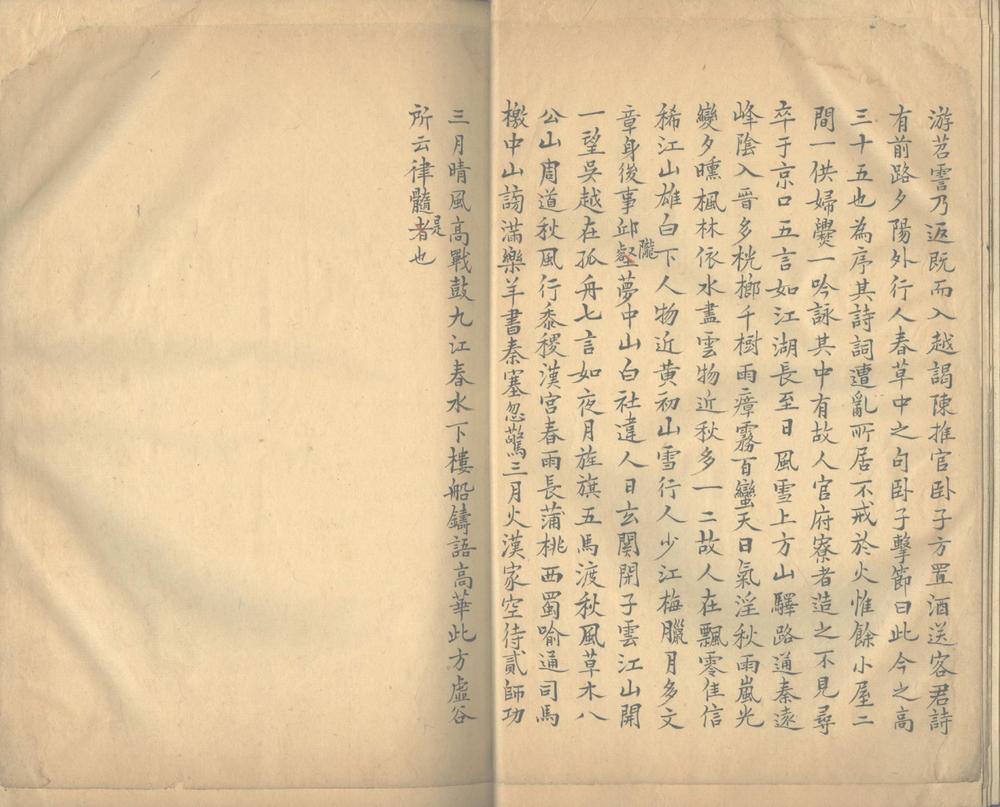 游苕霅乃返既而入越謁陳推官卧子方置酒送客君詩
有前路夕陽外行人春草中之句卧子擊節曰此今之高
三十五也為序其詩詞遭亂所居不戒於火惟餘小屋二
間一供婦爨一吟詠其中有故人官府寮者造之不見尋
卒于京口五言如江湖長至日風雪上方山驛路通秦遠
峰陰入晉多桄榔千樹雨瘴霧百蠻天日氣淫秋雨嵐光
變夕曛楓林依水盡雲物近秋多一二故人在飄零佳信
稀江山雄白下人物近黄初山雪行人少江梅臘月多文
章身後事邱壑夢中山白社違人日玄関閉子雲江山開
隴
一望吳越在孤舟七言如夜月旌旗五馬渡秋風草木八
公山周道秋風行黍稷漢宮春雨長蒲桃西蜀喻通司馬
檄中山謗滿樂羊書秦塞忽驚三月火漢家空待貳師功
三月晴風高戰鼓九江春水下樓船鑄語高華此方虛谷
所云律髓者也
是